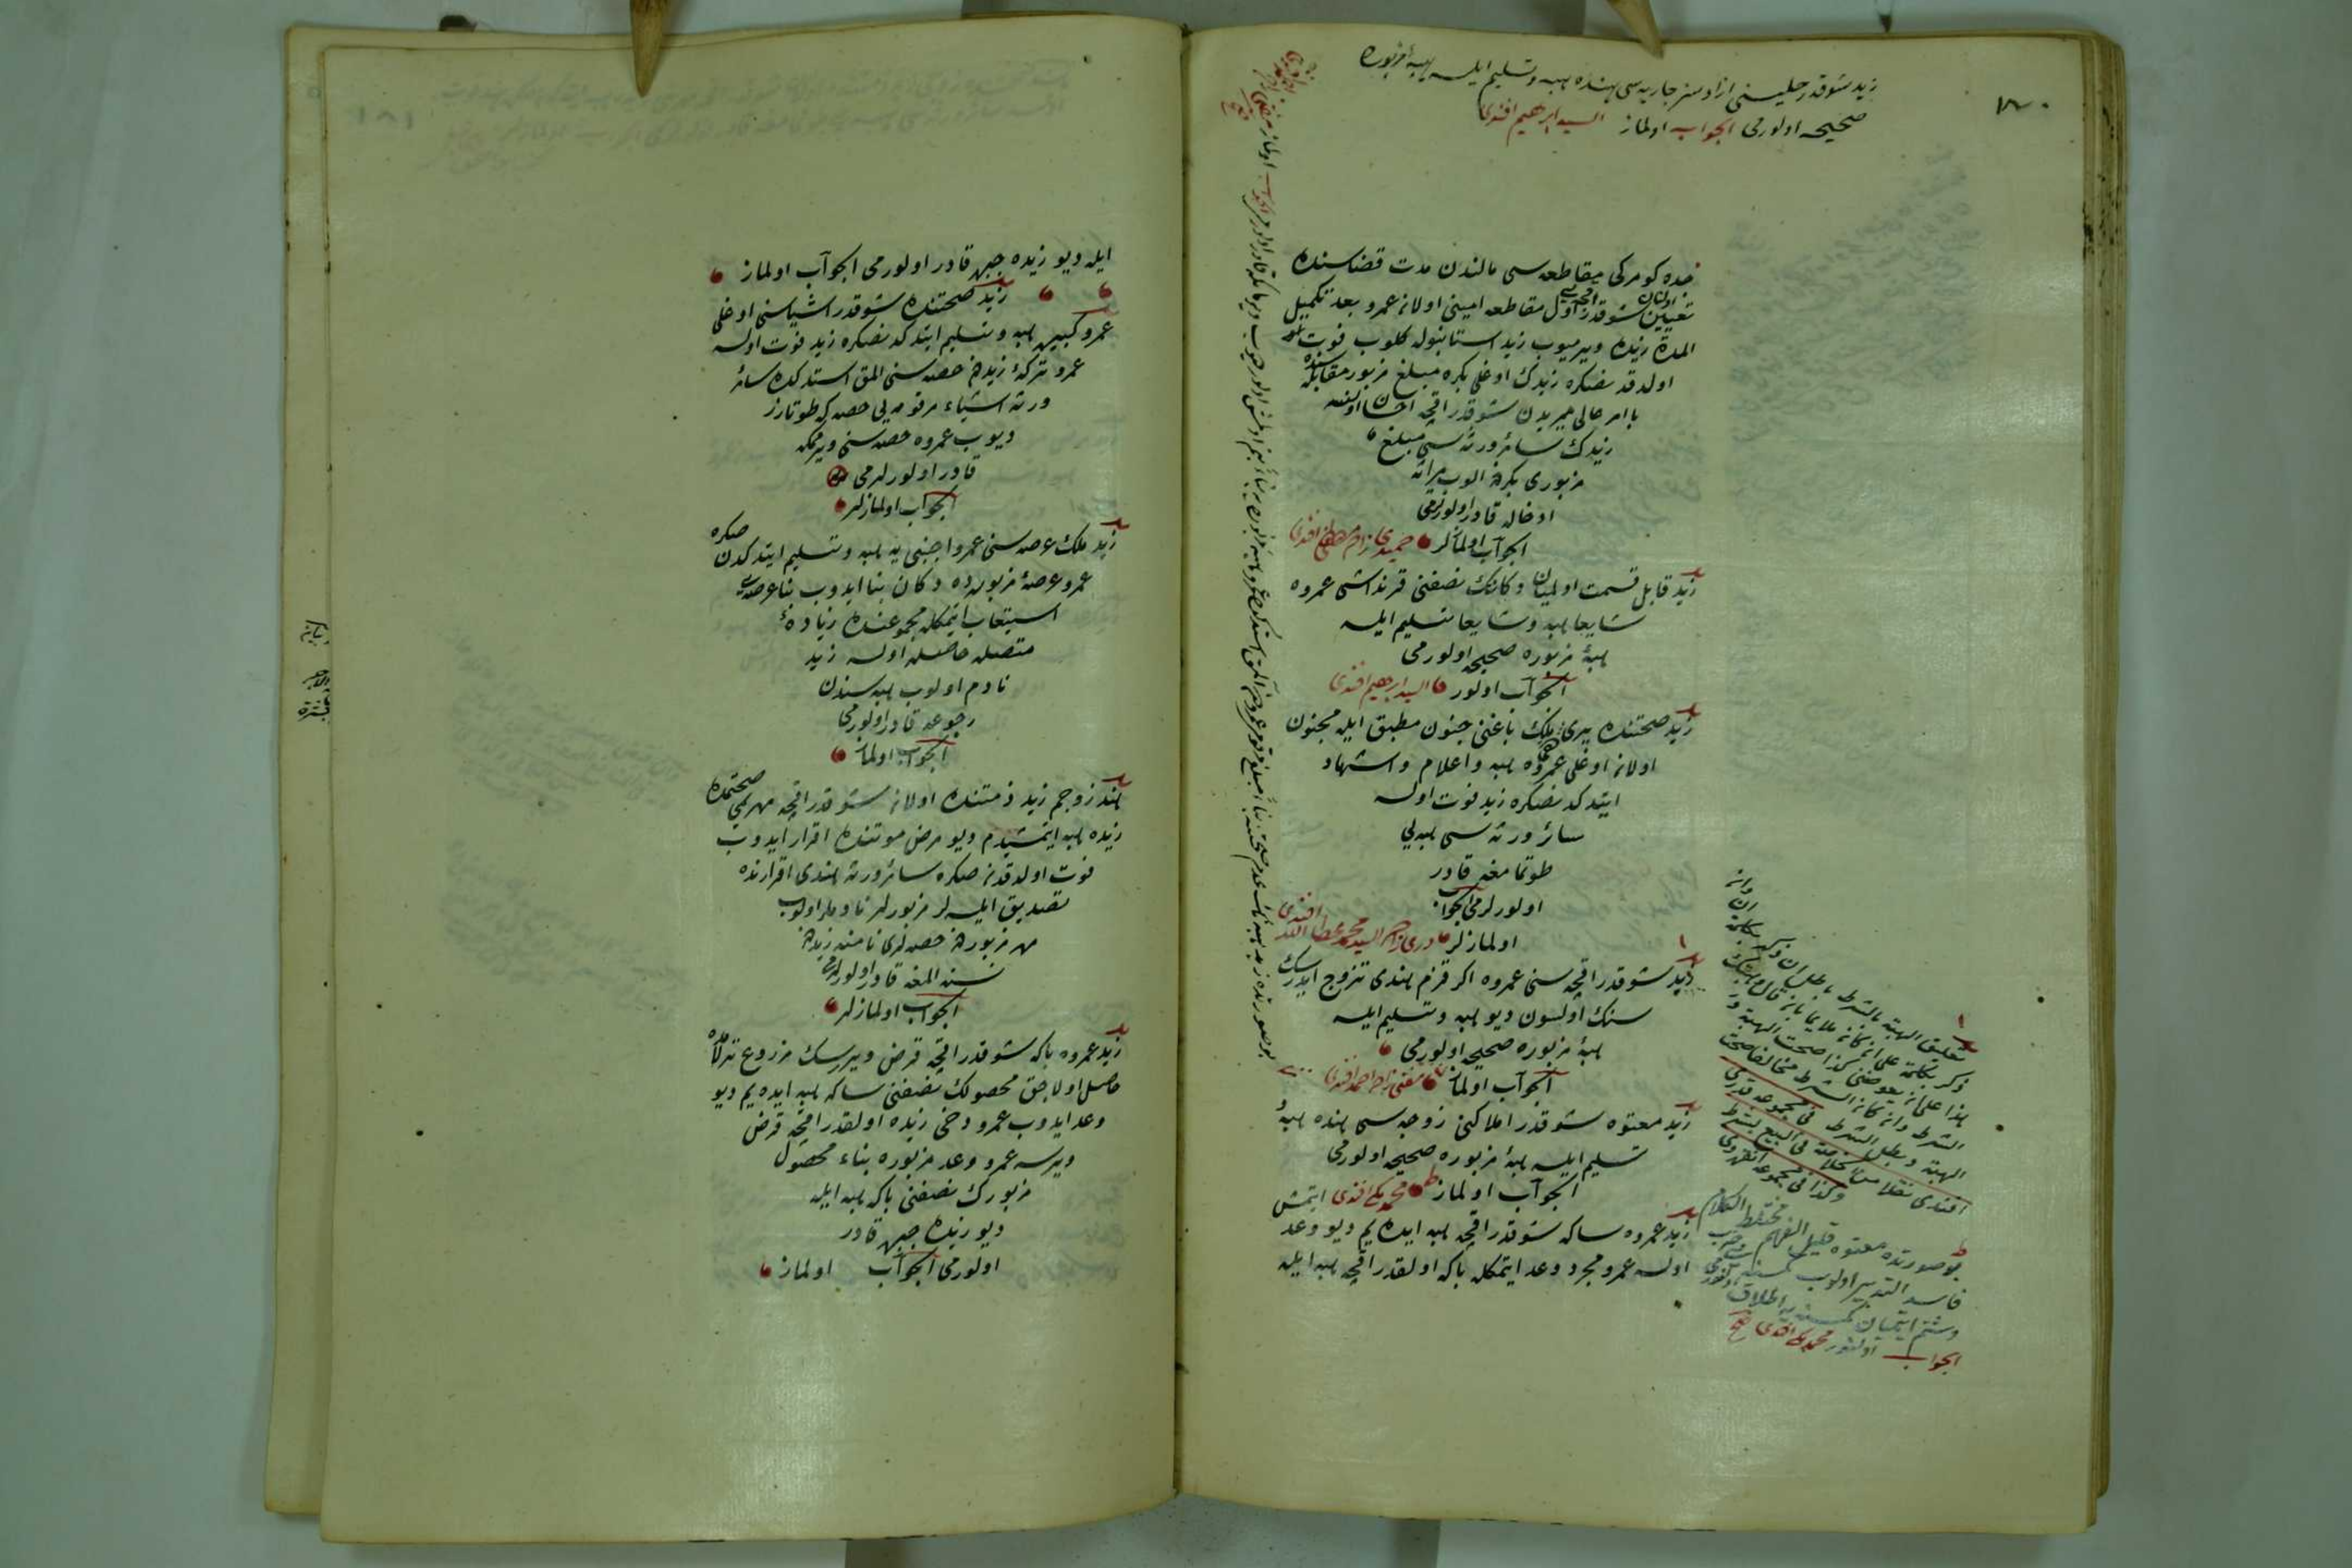 ١٨٠
زيد شو قدر حليسنى ازادسز جاريه سى هنده هبه وتسليم ايلسه هبۀ مزبوره
صحيحه اولورمى الجواب اولماز السيد ابرهيم افندى
خده كومركى مقاطعه سى مالندن مدت قضاسنده
تعيين اولنان شو قدر اقچه يى اول مقاطعه امينى اولان عمرو بعد تكميل
المدة زيده ويرميوب زيد استانبوله كلوب فوت
اولدقدنصكره زيدك اوغلى بكره مبلغ مزبور مقابله سنده
با امر عالى ميريدن شو قدر اقچه احسان اولنسه
زيدك سائر ورثه سى مبلغ
مزبورى بكردن الوب ميراثه
ادخاله قادر اولورلرمى
الجواب اولمازلر حميدى زاده مصطفى افندى
زيد قابل قسمت اولميان دكانك نصفنى قرنداشى عمروه
شايعا هبه وشايعا تسليم ايلسه
هبۀ مزبوره صحيحه اولورمى
الجواب اولور السيد ابرهيم افندى
زيد صحتنده يرى ملك باغنى جنون مطبق ايله مجنون
اولان اوغلى عمروه هبه واعلام واشهاد
ايتدكدنصكره زيد فوت اولسه
سائر ورثه سى هبه يى
طوتمامغه قادر
اولورلرمى الجواب
اولمازلر درى زاده السيد محمد عطاء الله افندى
زيد شو قدر اقچه سنى عمروه اكر قزم هندى تزوج ايدرسك
سنك اولسون ديو هبه وتسليم ايلسه
هبۀ مزبوره صحيحه اولورمى
الجواب اولماز مفتى زاده احمد افندى
زيد معتوه شو قدر املاكنى زوجه سى هنده هبه و
تسليم ايلسه هبۀ مزبوره صحيحه اولورمى
الجواب اولماز محمد مكى افندى
زيد عمروه ساكه شو قدر اقچه هبه ايده يم ديو وعد ايتمش
اولسه عمرو مجرد وعد ايتمكله باكه اولقدر اقچه هبه ايله
تعليق الهبة بالشرط باطل ان ذكر بكلمة ان وان
ذكر بكلمة على ان كان ملايما بان قال وهبتك
هذا على ان يعوضنى كذا صحت الهبة و
الشرط وان كان الشرط مخالفا صحت
الهبة وبطل الشرط فى مجموعه قدرى
افندى نقلا من الخلاصة فى البيع بشرط
وكذا فى مجموعه انقروى
بو صورتده معتوه قليل الفهم مختلط الكلام
فاسد التدبير اولوب كمسنه يى ضرب
وشتم ايتميان كمسنه يه اطلاق اولنورمى
الجواب اولنور محمد مكى افندى
ايله ديو زيده جبره قادر اولورمى الجواب اولماز
زيد صحتنده شو قدر اشياسنى اوغلى
عمرو كبيره هبه وتسليم ايتدكدنصكره زيد فوت اولسه
عمرو تركۀ زيددن حصه سنى المق استدكده سائر
ورثه اشياء مرقومه يى حصه كه طوتارز
ديوب عمروه حصه سنى ويرمكه
قادر اولورلرمى
الجواب اولمازلر
زيد ملك عرصه سنى عمرو اجنبى يه هبه وتسليم ايتدكدن صكره
عمرو عرصۀ مزبورده دكان بنا ايدوب بنا عرصه يى
استيعاب ايتمكله مجموعنده زيادۀ
متصله حاصله اولسه زيد
نادم اولوب هبه سندن
رجوعه قادر اولورمى
الجواب اولماز
هند زوجم زيد ذمتنده اولان شو قدر اقچه مهرمى صحتمده
زيده هبه ايتمشيدم ديو مرض موتنده اقرار ايدوب
فوت اولدقدن صكره سائر ورثه هندى اقرارنده
تصديق ايلسه لر مزبورلر نادملر اولوب
مهر مزبوردن حصه لرى نامنه زيددن
نسنه المغه قادر اولورلرمى
الجواب اولمازلر
زيد عمروه باكه شو قدر اقچه قرض ويررسك مزروع
حاصل اولاجق محصولك نصفنى ساكه هبه ايده يم ديو
وعد ايدوب عمرو دخى زيده اولقدر اقچه قرض
ويرسه عمرو وعد مزبوره بناء محصول
مزبورك نصفنى باكه هبه ايله
ديو زيده جبره قادر
اولورمى الجواب اولماز